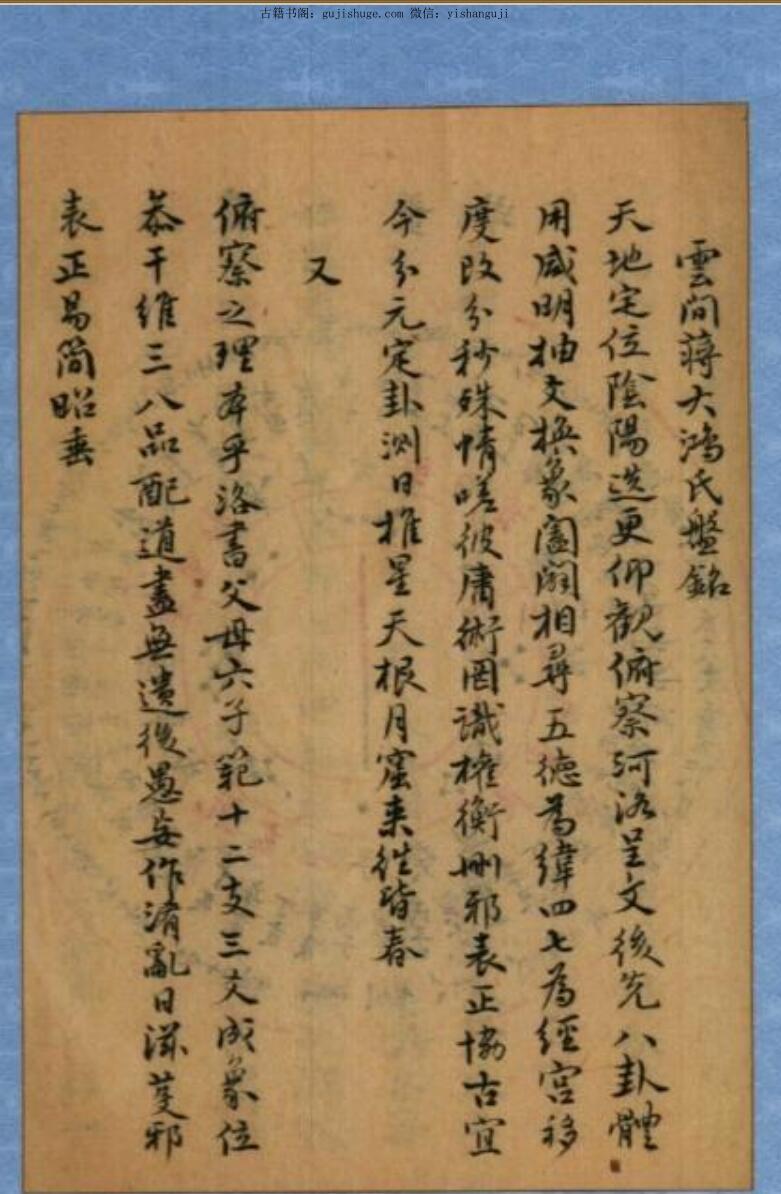 古籍书阁：gujishuge.com 微信：yishanguji
雲间蒋大鴻氏盤銘
天地宅位陰陽迭更仰觀俯察河洛呈文後先八卦體
用咸明抽文換象闔闢相尋五德為緯四七為經宫移
度改分秒殊情嗟彼庸術罔識權衡删邪表正協古宜
今分元定卦測日推星天根月窟来往皆春
又
俯察之理本乎洛書父母六子範十二支三爻成象位
忝干維三八品配道盡無遺後愚妄作淆亂日滋芟邪
表正易简昭垂